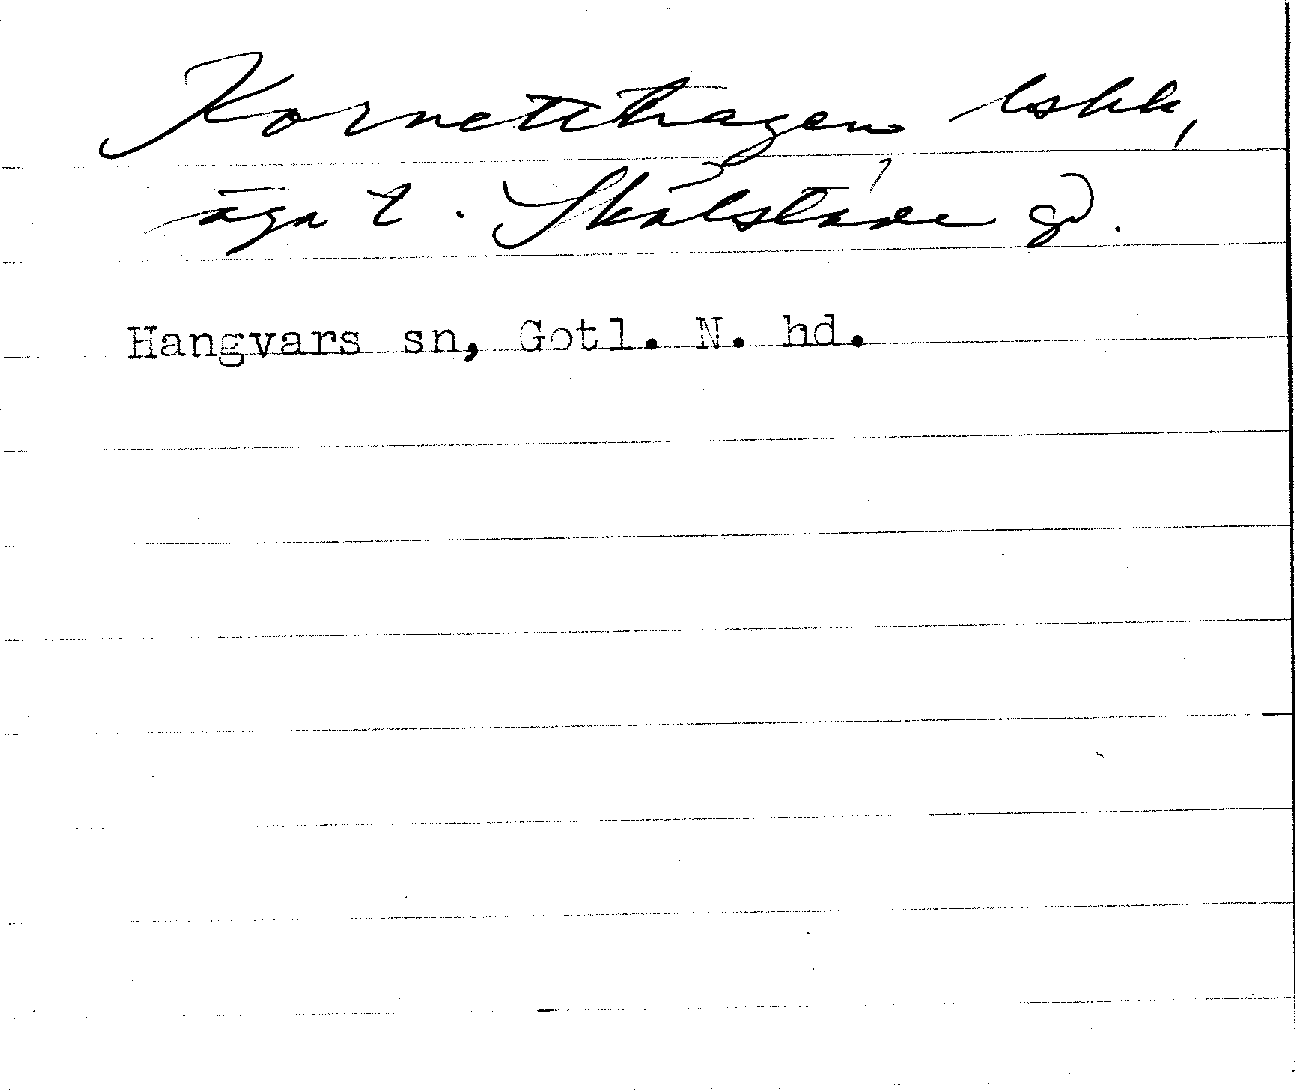 Kornetthagen, lshk,
äga t. Skälstäde gd.
Hangvars sn, Gotl. N. hd.